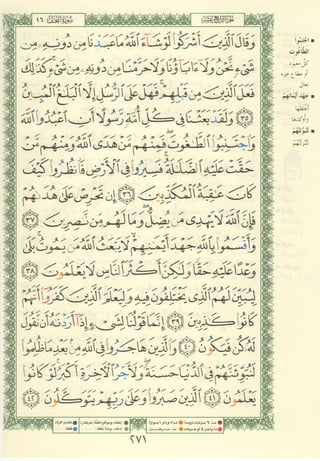 الجزء الرابع عشر
سورة النحل ١٦
وَقَالَ ٱلَّذِينَ أَشْرَكُوا۟ لَوْ شَآءَ ٱللَّهُ مَا عَبَدْنَا مِن دُونِهِۦ مِن
شَىْءٍ نَّحْنُ وَلَآ ءَابَآؤُنَا وَلَا حَرَّمْنَا مِن دُونِهِۦ مِن شَىْءٍ ۚ كَذَٰلِكَ
فَعَلَ ٱلَّذِينَ مِن قَبْلِهِمْ ۚ فَهَلْ عَلَى ٱلرُّسُلِ إِلَّا ٱلْبَلَٰغُ ٱلْمُبِينُ
٣٥ وَلَقَدْ بَعَثْنَا فِى كُلِّ أُمَّةٍ رَّسُولًا أَنِ ٱعْبُدُوا۟ ٱللَّهَ
وَٱجْتَنِبُوا۟ ٱلطَّٰغُوتَ ۖ فَمِنْهُم مَّنْ هَدَى ٱللَّهُ وَمِنْهُم مَّنْ
حَقَّتْ عَلَيْهِ ٱلضَّلَٰلَةُ ۚ فَسِيرُوا۟ فِى ٱلْأَرْضِ فَٱنظُرُوا۟ كَيْفَ
كَانَ عَٰقِبَةُ ٱلْمُكَذِّبِينَ ٣٦ إِن تَحْرِصْ عَلَىٰ هُدَىٰهُمْ
فَإِنَّ ٱللَّهَ لَا يَهْدِى مَن يُضِلُّ ۖ وَمَا لَهُم مِّن نَّٰصِرِينَ ٣٧
وَأَقْسَمُوا۟ بِٱللَّهِ جَهْدَ أَيْمَٰنِهِمْ ۙ لَا يَبْعَثُ ٱللَّهُ مَن يَمُوتُ ۚ بَلَىٰ
وَعْدًا عَلَيْهِ حَقًّا وَلَٰكِنَّ أَكْثَرَ ٱلنَّاسِ لَا يَعْلَمُونَ ٣٨
لِيُبَيِّنَ لَهُمُ ٱلَّذِى يَخْتَلِفُونَ فِيهِ وَلِيَعْلَمَ ٱلَّذِينَ كَفَرُوٓا۟ أَنَّهُمْ
كَانُوا۟ كَٰذِبِينَ ٣٩ إِنَّمَا قَوْلُنَا لِشَىْءٍ إِذَآ أَرَدْنَٰهُ أَن نَّقُولَ
لَهُۥ كُن فَيَكُونُ ٤٠ وَٱلَّذِينَ هَاجَرُوا۟ فِى ٱللَّهِ مِنۢ بَعْدِ مَا ظُلِمُوا۟
لَنُبَوِّئَنَّهُمْ فِى ٱلدُّنْيَا حَسَنَةً ۖ وَلَأَجْرُ ٱلْءَاخِرَةِ أَكْبَرُ ۚ لَوْ كَانُوا۟
يَعْلَمُونَ ٤١ ٱلَّذِينَ صَبَرُوا۟ وَعَلَىٰ رَبِّهِمْ يَتَوَكَّلُونَ ٤٢
٢٧١
اجْتَنِبُوا
الطَّاغُوتَ
كلَّ معبود
أو مطاع غيره
تعالى
جَهْدَ أَيْمَانِهِمْ
أغلظها
وأوكدها
لَنُبَوِّئَنَّهُمْ
لننزلنهم